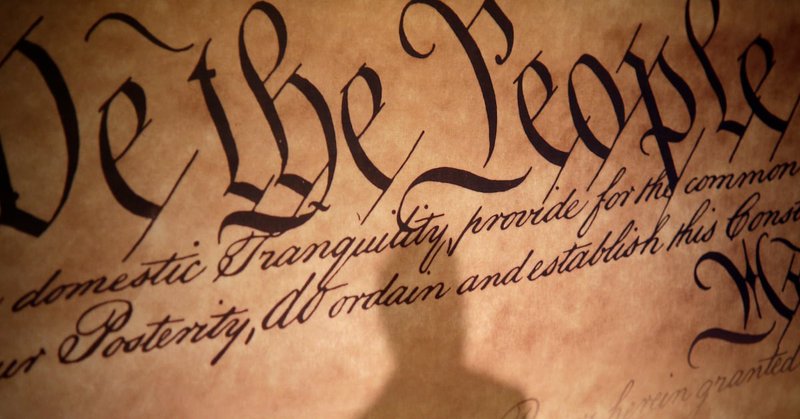 We the People
domestic Tranquility, provide for the common
Posterity, do ordain and establish this
herein granted